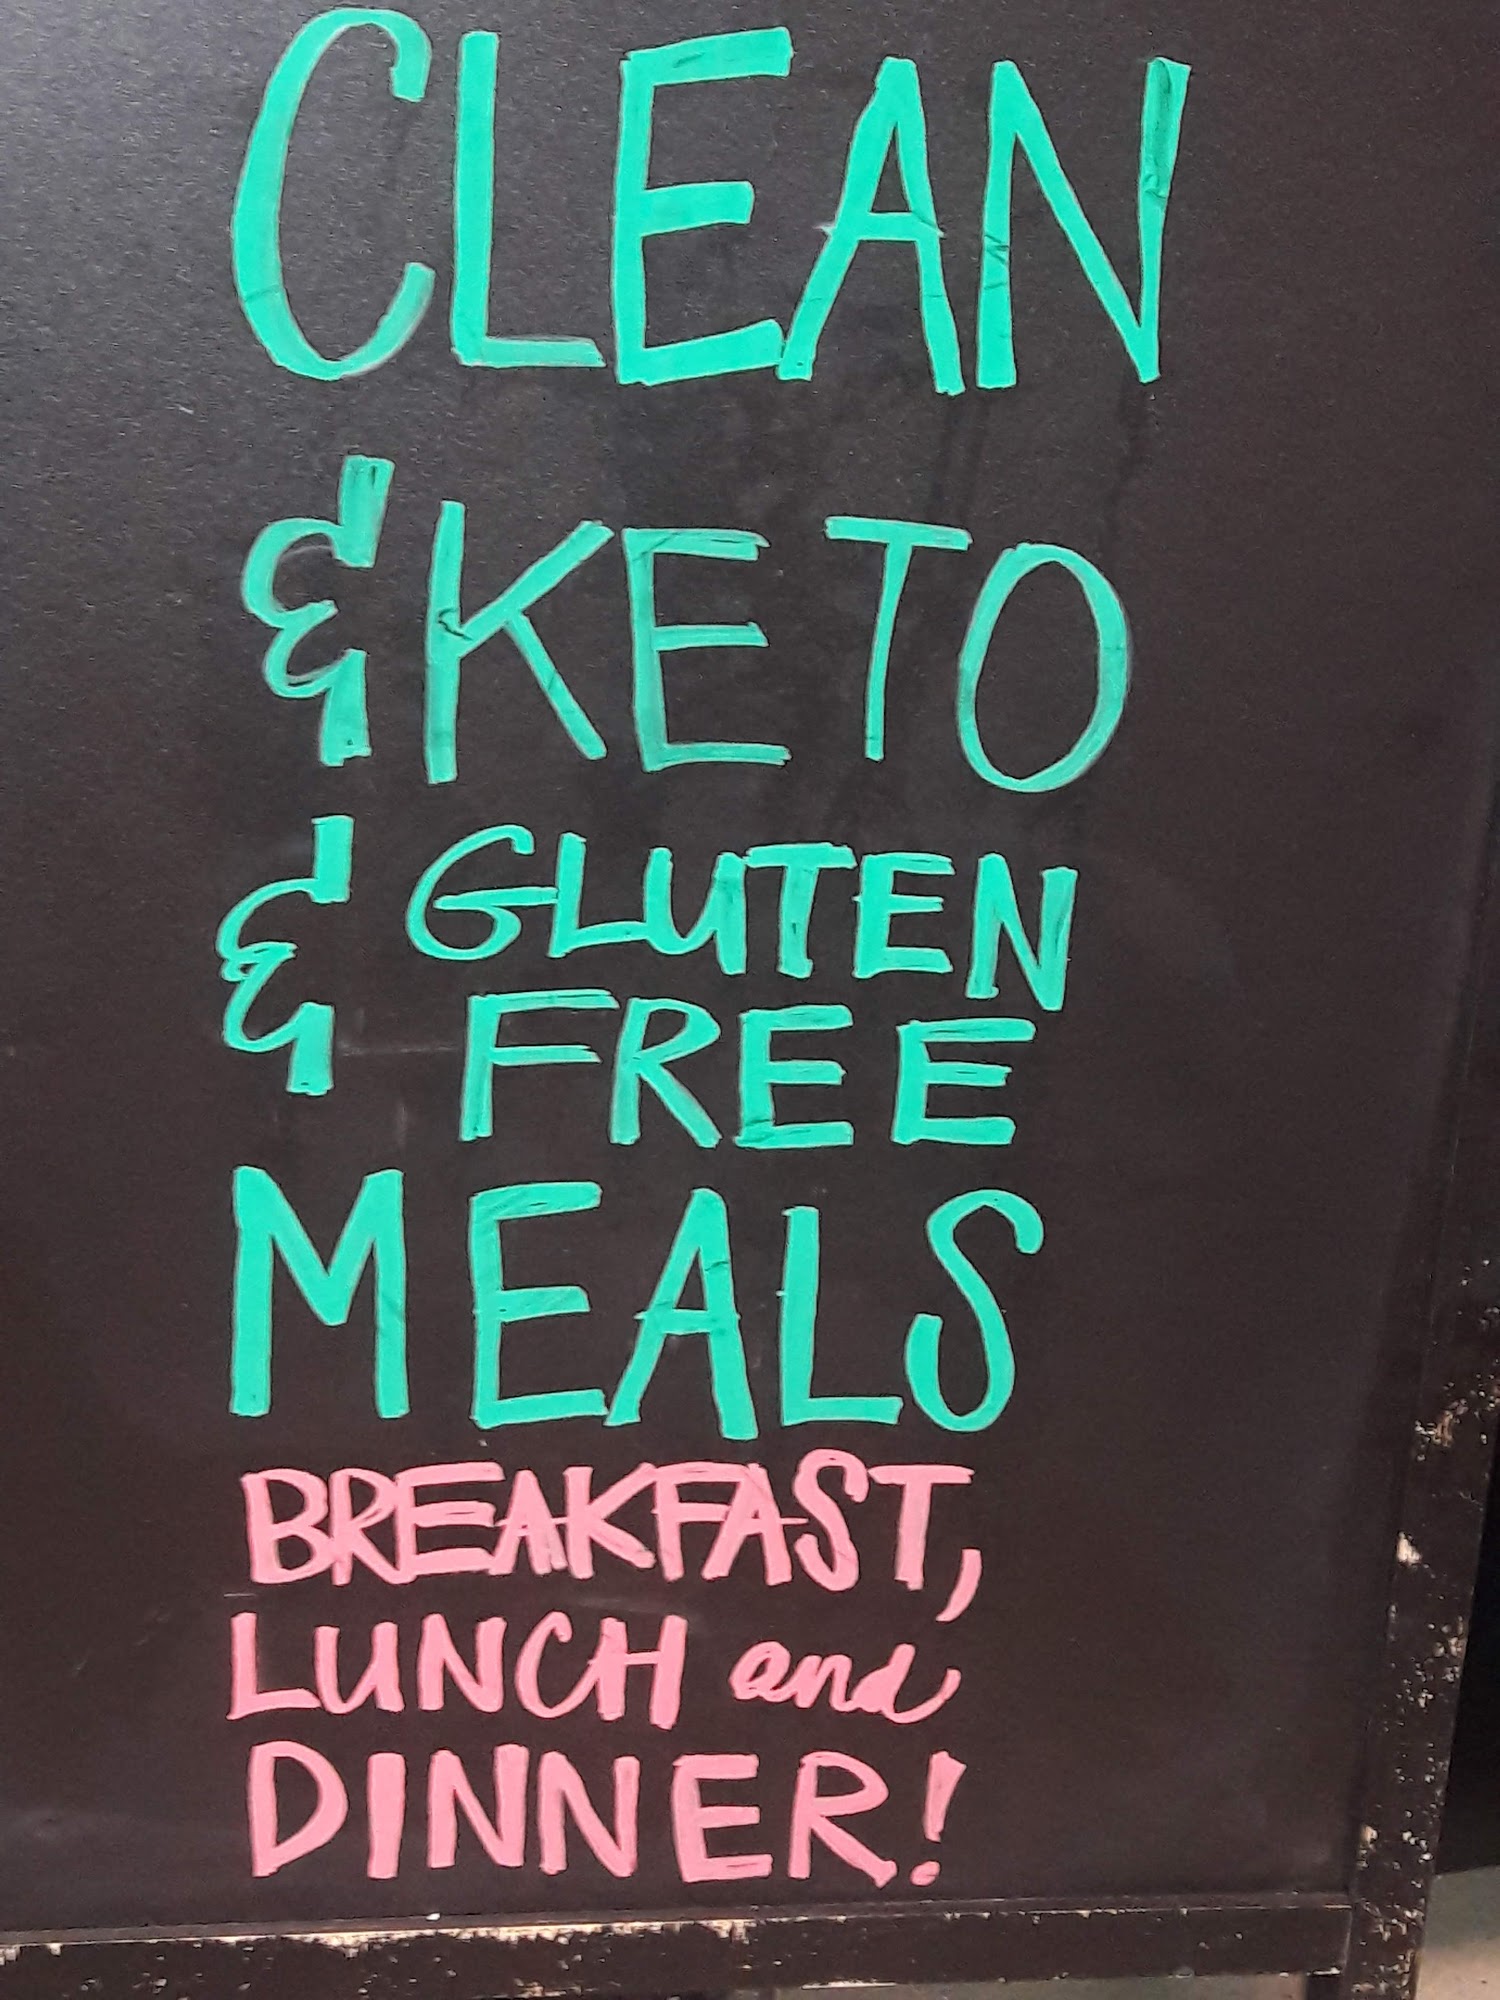 CLEAN
& KETO
& GLUTEN
FREE
MEALS
BREAKFAST,
LUNCH and
DINNER!